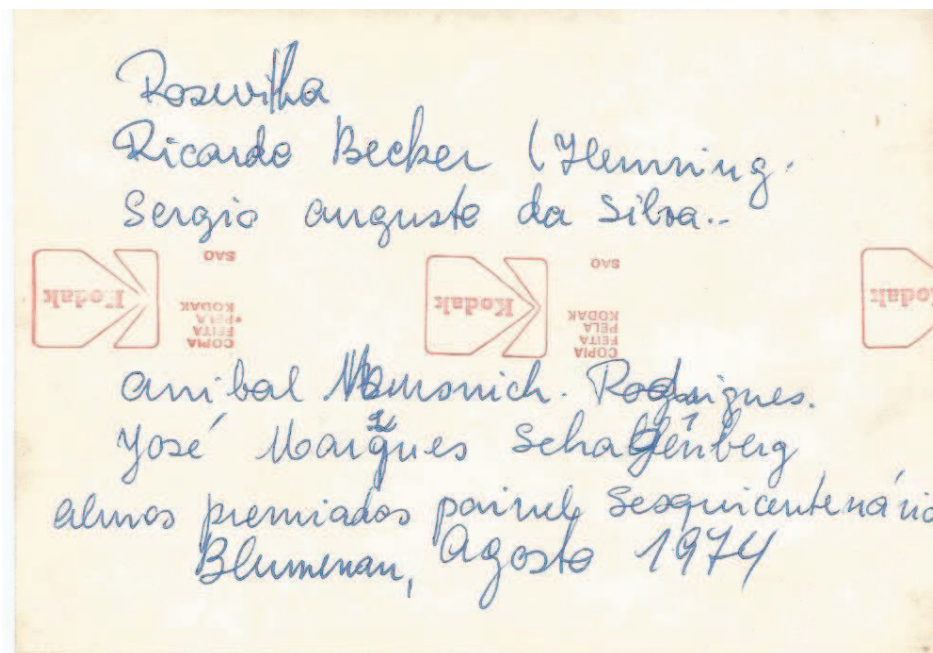 Rosuvitha
Ricardo Becker (Henning.
Sergio augusto da Silva..
Kodak
SAO
COPIA
FEITA
PELA
KODAK
Kodak
SAO
COPIA
FEITA
PELA
KODAK
Kodak
anibal Rodrigues.
José Marques
alunos premiados painel Sesquicentenário
Blumenau, Agosto 1974